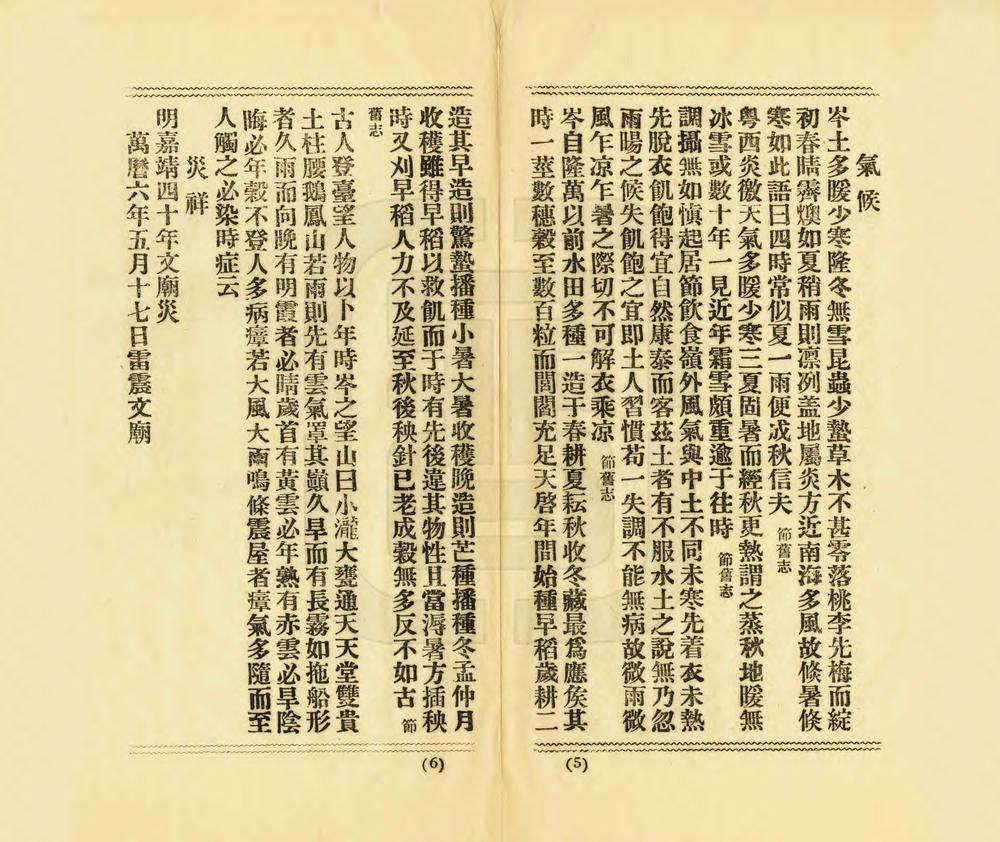 氣候
岑土多暖少寒隆冬無雪昆蟲少蟄草木不甚零落桃李先梅而綻
初春晴霽燠如夏稍雨則凛冽盖地屬炎方近南海多風故倏暑倏
寒如此語曰四時常似夏一雨便成秋信夫 節舊志
粤西炎徼天氣多暖少寒三夏固暑而經秋更熱謂之蒸秋地暖無
冰雪或數十年一見近年霜雪頗重逾于往時 節舊志
調攝無如慎起居節飲食嶺外風氣與中土不同未寒先着衣未熱
先脫衣飢飽得宜自然康泰而客茲土者有不服水土之說無乃忽
雨暘之候失飢飽之宜即土人習慣苟一失調不能無病故微雨微
風乍凉乍暑之際切不可解衣乘凉 節舊志
岑自隆萬以前水田多種一造于春耕夏耘秋收冬藏最爲應俟其
時一莖數穗穀至數百粒而閭閻充足天啓年間始種早稻歲耕二
(5)
造其早造則驚蟄播種小暑大暑收穫晚造則芒種播種冬孟仲月
收穫雖得早稻以救飢而于時有先後違其物性且當溽暑方插秧
時又刈早稻人力不及延至秋後秧針已老成穀無多反不如古 節
舊志
古人登臺望人物以卜年時岑之望山曰小瀧大甕通天天堂雙貴
土柱腰鵝鳳山若雨則先有雲氣罩其巔久旱而有長霧如拖船形
者久雨而向晚有明霞者必晴歲首有黃雲必年熟有赤雲必旱陰
晦必年穀不登人多病瘴若大風大雨鳴條震屋者瘴氣多隨而至
人觸之必染時症云
災祥
明嘉靖四十年文廟災
萬曆六年五月十七日雷震文廟
(6)